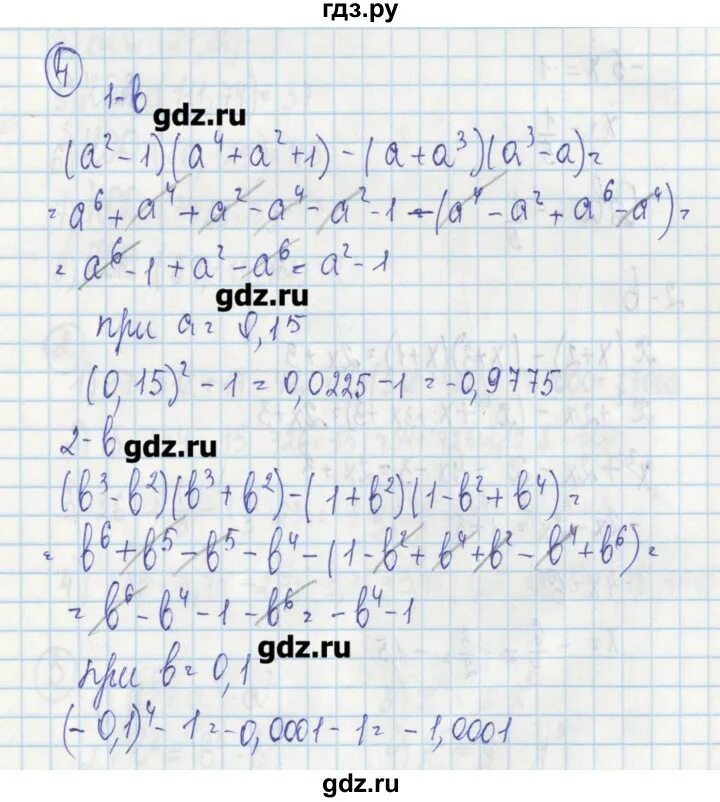 гдз.ру
4
1-в
gdz.ru
(a² - 1)(a⁴ + a² + 1) - (a + a³)(a³ - a) =
= a⁶ + a⁴ + a² - a⁴ - a² - 1 - (a⁴ - a² + a⁶ - a⁴) =
= a⁶ - 1 + a² - a⁶ = a² - 1
gdz.ru
при a = 0,15
(0,15)² - 1 = 0,0225 - 1 = -0,9775
2-в
gdz.ru
(в³ - в²)(в³ + в²) - (1 + в²)(1 - в² + в⁴) =
= в⁶ + в⁵ - в⁵ - в⁴ - (1 - в² + в⁴ + в² - в⁴ + в⁶) =
= в⁶ - в⁴ - 1 - в⁶ = -в⁴ - 1
gdz.ru
при в = 0,1
(-0,1)⁴ - 1 = -0,0001 - 1 = -1,0001
gdz.ru